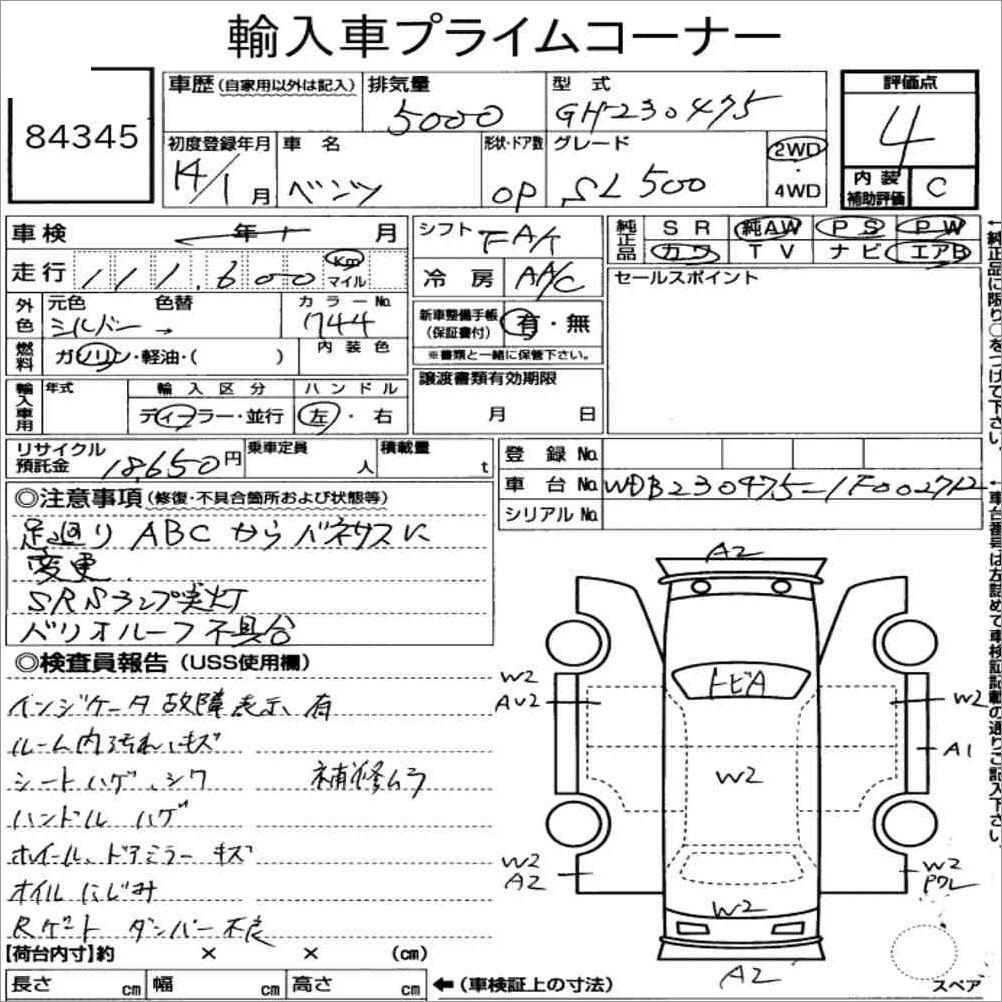 輸入車プライムコーナー
84345
車歴(自家用以外は記入)
排気量
5000
型式
GH-230475
評価点
4
初度登録年月
14/1月
車名
ベンツ
形状・ドア数
OP
グレード
SL500
2WD
・
4WD
内装
補助評価
C
車検 年 月
シフト FAT
純正品
SR 純AW PS PW
カワ TV ナビ エアB
走行 111,600 Km
マイル
冷房 AAC
セールスポイント
外色
元色 色替
シルバー →
カラーNo.
744
新車整備手帳
(保証書付)
有・無
※書類と一緒に保管下さい。
燃料
ガソリン・軽油・( )
内装色
輸入車用
年式
輸入区分
ディーラー・並行
ハンドル
左・右
譲渡書類有効期限
月 日
リサイクル
預託金 18,650円
乗車定員
人
積載量
t
登録No.
車台No. WDB230475-1F002712
シリアルNo.
◎注意事項(修復・不具合箇所および状態等)
足廻り ABCからバネサスに
変更.
SRSランプ点灯
バリオルーフ不具合
◎検査員報告(USS使用欄)
インジケータ故障表示有
ルーム内汚れ、キズ
シートハゲ、シワ 補修ムラ
ハンドル ハゲ
ホイール、ドアミラー キズ
オイルにじみ
Rゲート ダンパー不良
【荷台内寸】約 × × (cm)
長さ cm 幅 cm 高さ cm
←(車検証上の寸法)
A2
トビA
W2
AU2
W2
A1
W2
W2
A2
W2
Pワレ
W2
A2
スペア
←純正品に限り○をつけて下さい。
←車台番号は左詰めで車検証記載の通りご記入下さい。